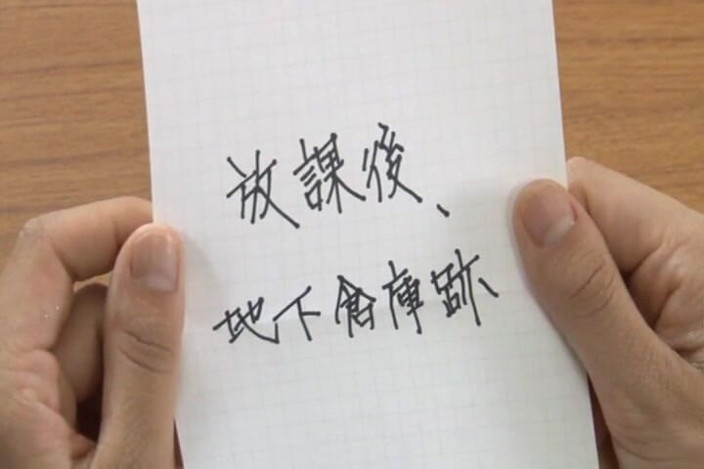 放課後、
地下倉庫跡